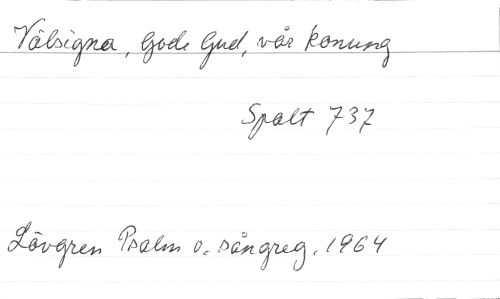 Välsigna, gode Gud, vår konung
Spalt 737
Lövgren Psalm o. sångreg. 1964